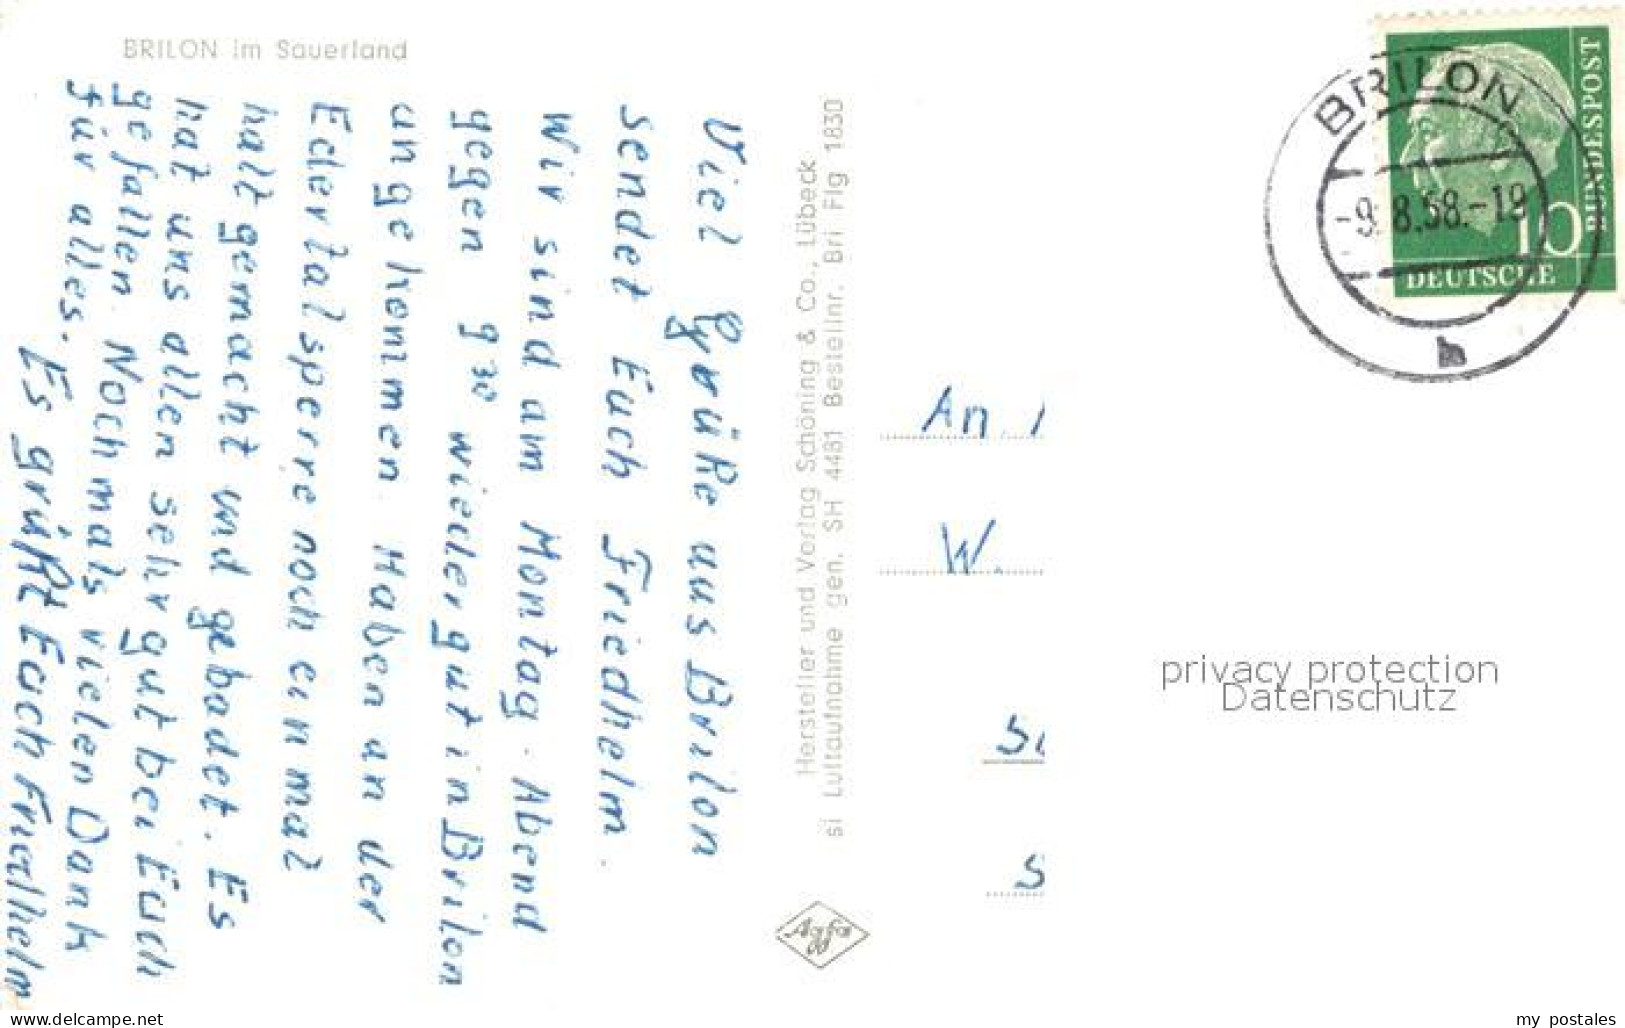 BRILON im Sauerland
Viel Grüße aus Brilon
sendet Euch Friedhelm.
Wir sind am Montag-Abend
gegen 9³⁰ wieder gut in Brilon
angekommen. Haben an der
Edertalsperre noch einmal
halt gemacht und gebadet. Es
hat uns allen sehr gut bei Euch
gefallen. Nochmals vielen Dank
für alles.
Es grüßt Euch Friedhelm
Hersteller und Verlag Schöning & Co., Lübeck
si Luftaufnahme gen. SH 4481 Bestellnr. Bri Flg 1830
Agfa
BRILON
-9.8.58.-19
b
10
DEUTSCHE
BUNDESPOST
An
W.
S
privacy protection
Datenschutz
www.delcampe.net
my_postales